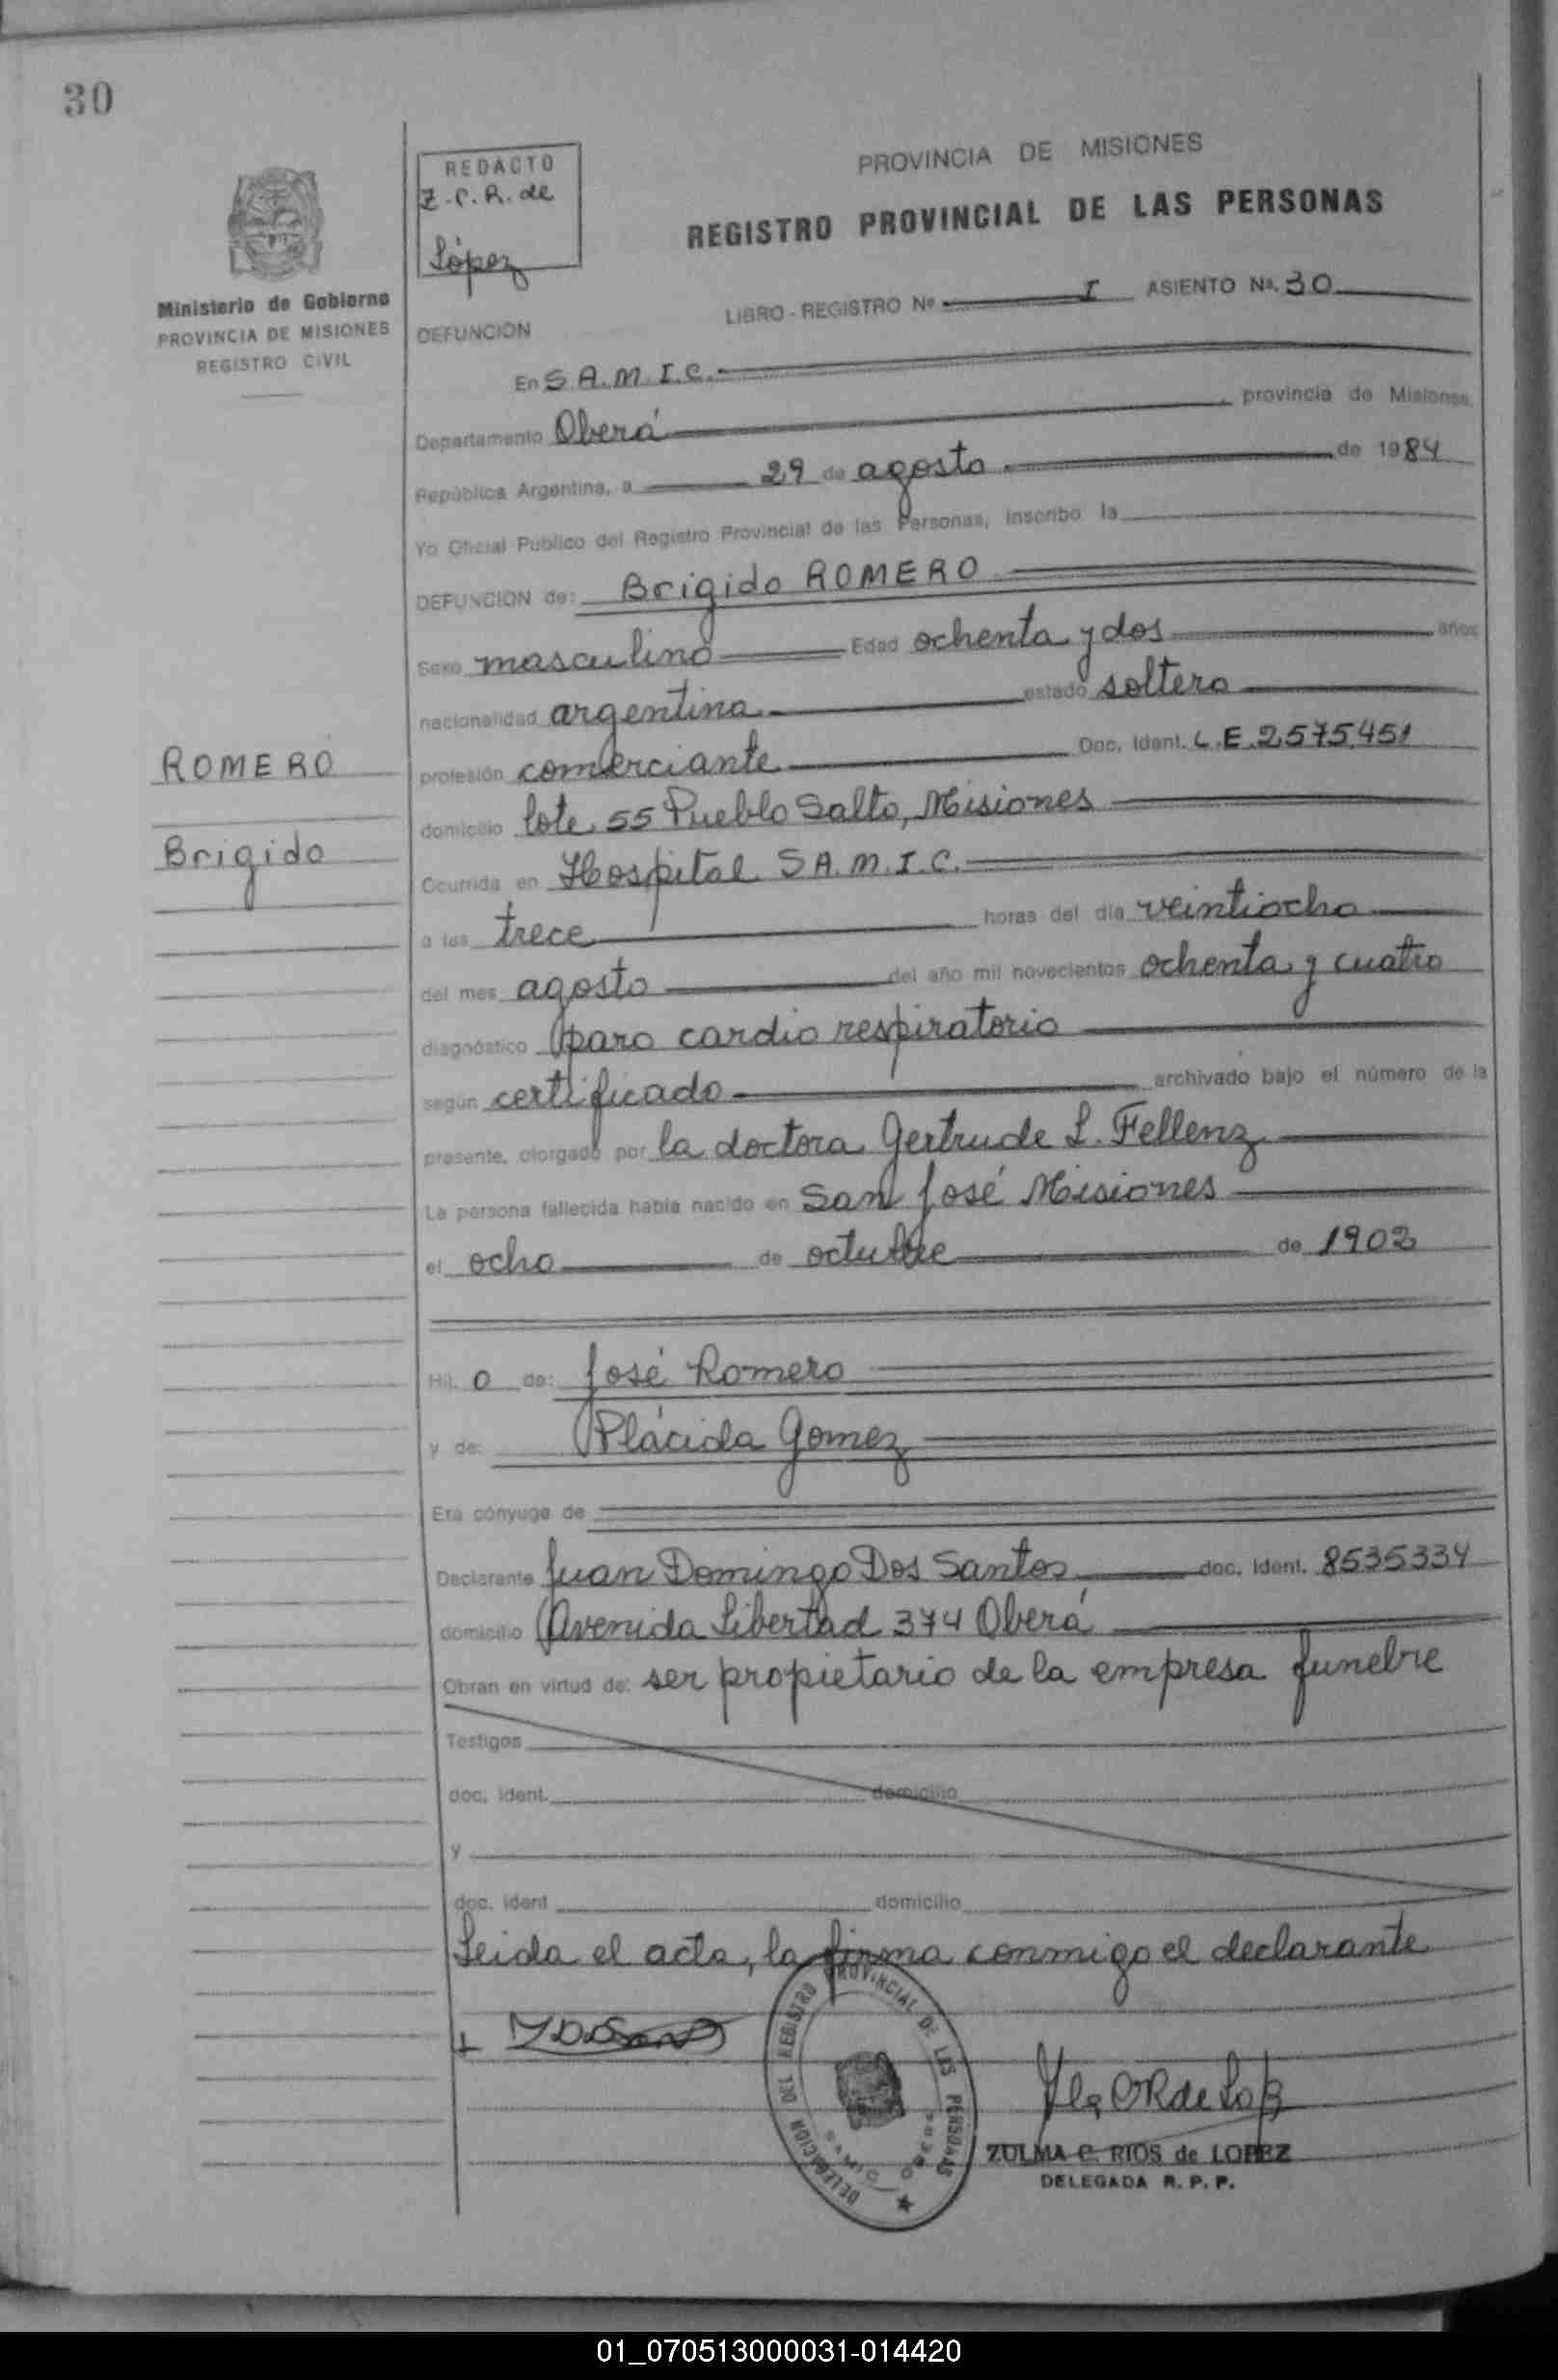 30
REDACTO
Z.C.R. de
López
Ministerio de Gobierno
PROVINCIA DE MISIONES
REGISTRO CIVIL
PROVINCIA DE MISIONES
REGISTRO PROVINCIAL DE LAS PERSONAS
LIBRO - REGISTRO Nº I ASIENTO Nº. 30
DEFUNCION
En S.A.M.I.C.
Departamento Oberá , provincia de Misiones,
República Argentina, a 29 de agosto de 1984
Yo Oficial Público del Registro Provincial de las Personas, inscribo la
DEFUNCION de: Brigido ROMERO
Sexo masculino Edad ochenta y dos años
nacionalidad argentina estado soltero
ROMERO
Brigido
profesión comerciante Doc. Ident. L.E. 2.575.451
domicilio lote 55 Pueblo Salto, Misiones
Ocurrida en Hospital S.A.M.I.C.
a las trece horas del día veintiocho
del mes agosto del año mil novecientos ochenta y cuatro
diagnóstico paro cardio respiratorio
según certificado archivado bajo el número de la
presente, otorgado por la doctora Gertrude L. Fellenz
La persona fallecida había nacido en San José Misiones
el ocho de octubre de 1902
Hij. o de: José Romero
y de: Plácida Gomez
Era cónyuge de
Declarante Juan Domingo Dos Santos doc. Ident. 8535334
domicilio Avenida Libertad 374 Oberá
Obran en virtud de: ser propietario de la empresa funebre
Testigos
doc. Ident. domicilio
y
doc. Ident domicilio
Leida el acta, la firma conmigo el declarante
DELEGACION DEL REGISTRO PROVINCIAL DE LAS PERSONAS
SAMIC OBERA
ZULMA C. RIOS de LOPEZ
DELEGADA R. P. P.
01_070513000031-014420